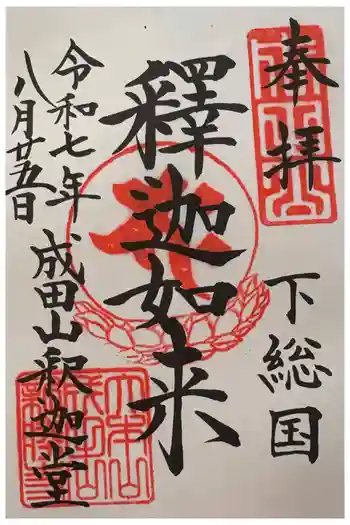 奉拝
下総国
釋迦如来
成田山釈迦堂
令和七年
八月廿五日